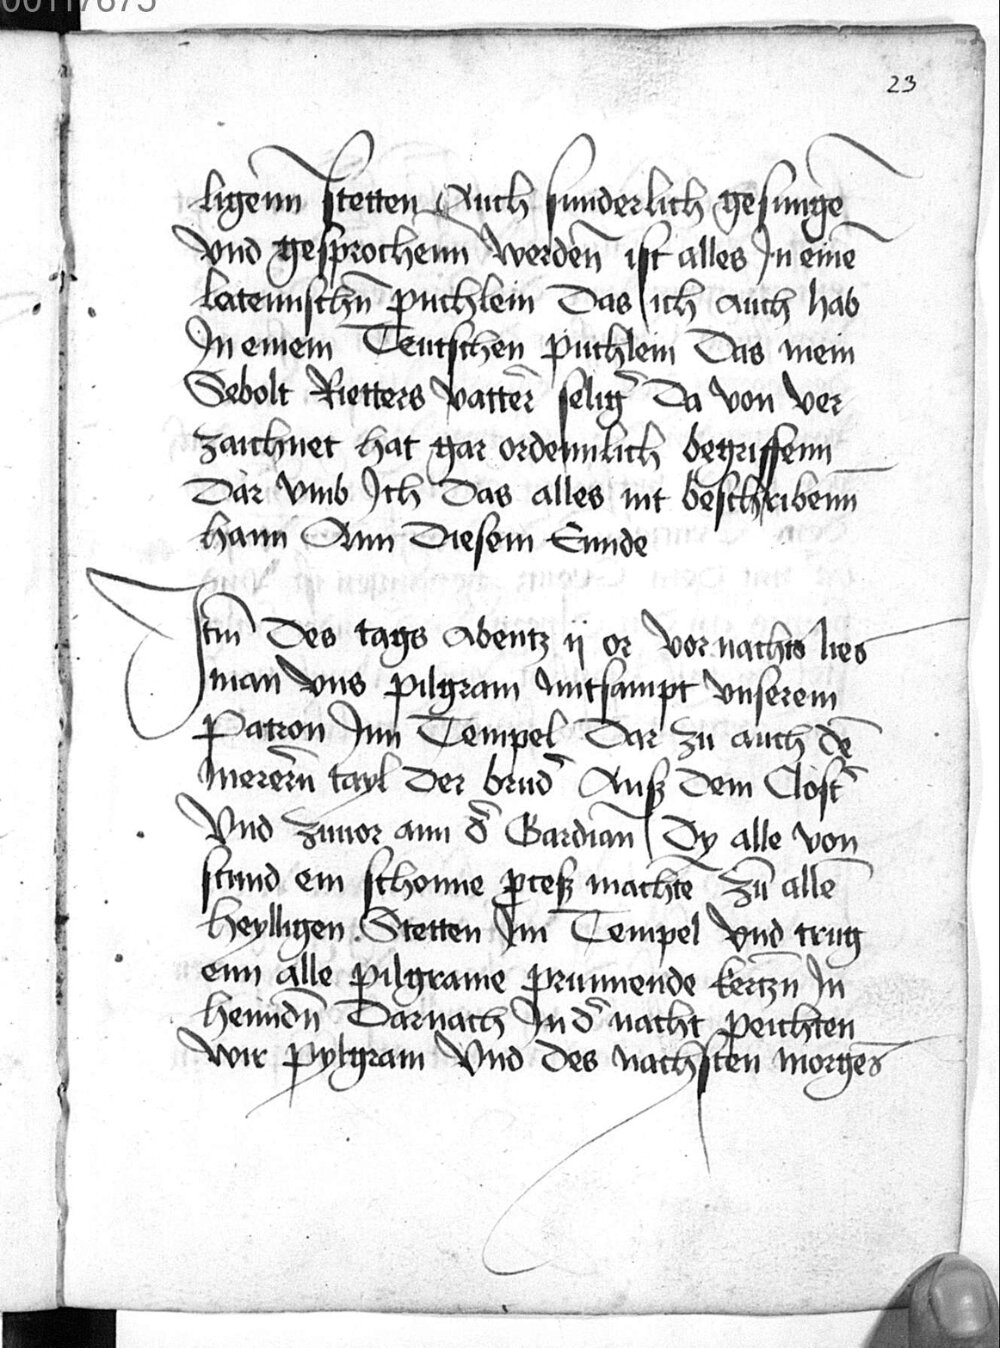 23
ligenn stetten Auch sunderlich gesungē
Vnd gesprochenn werdeñ ist alles Jn einē
lateinischñ puchlein Das ich auch hab
Jn einem Teutschen puchlein Das mein
Sebolt Rietters vatter selig Da von ver
zaichnet hat gar ordennlich begriffenn
Dar vmb Ich Das alles nit beschribenn
hann Ann Diesem Ennde
Itm̄ Des tags Abentz ij or vor nachts lies
man vns pilgram mitsampt vnserem
Patron Inn Tempel Dar zu auch dē
merern̄ tayl Der brud Auß Dem Clost
Vnd zuuor ann d Gardian Dy alle von
stund ein schonne preß machtē Zu allē
heylligen Stetten Im Tempel Vnd trug
ein alle pilgrame prinnende kertzn̄ In
henndn̄ Darnach In d nacht peichten
wir pylgram Vnd des nachsten morges